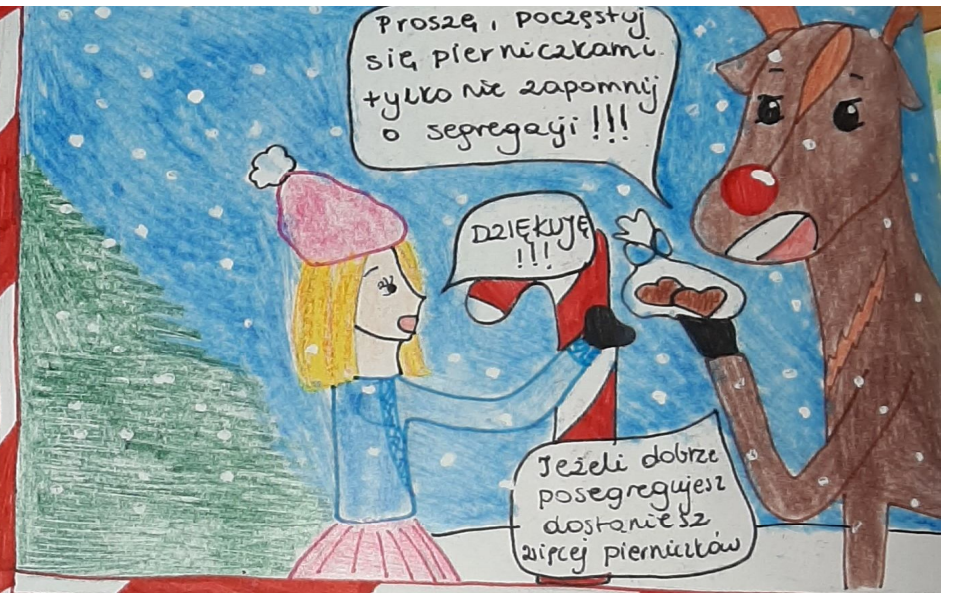 Proszę, poczęstuj
się pierniczkami
tylko nie zapomnij
o segregacji!!!
DZIĘKUJĘ
!!!
Jeżeli dobrze
posegregujesz
dostaniesz
więcej pierniczków